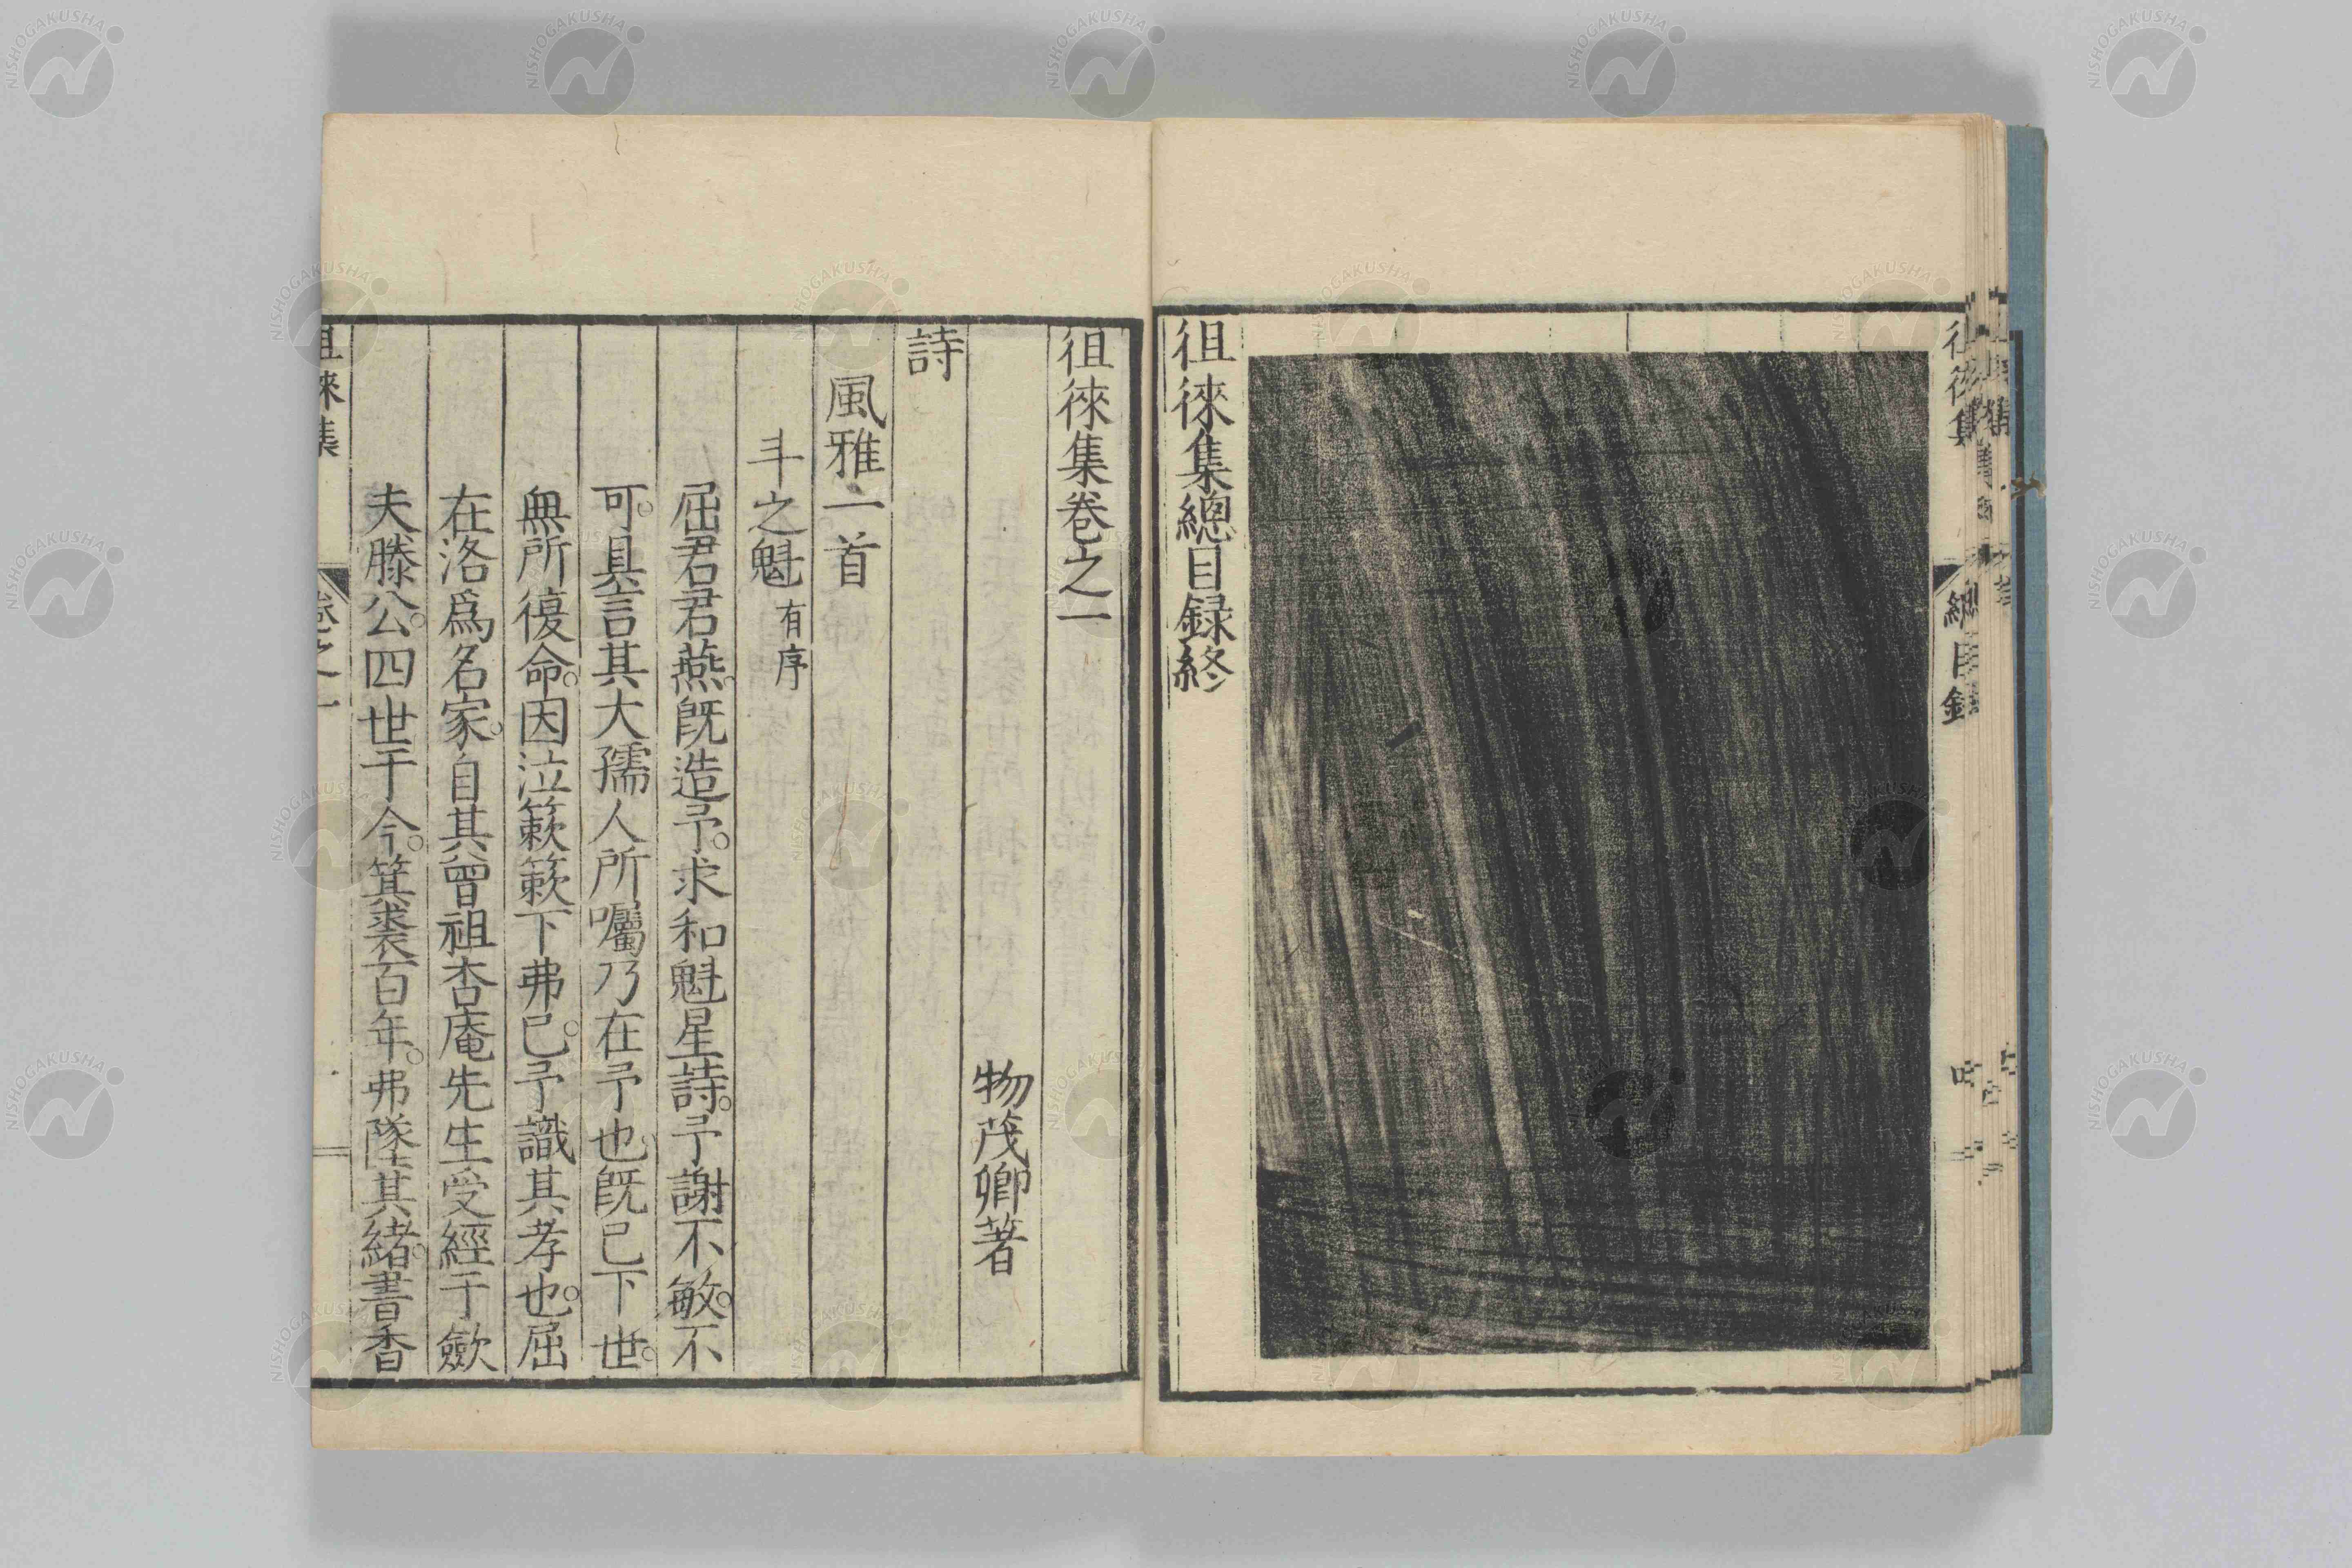 徂徠集總目録終
徂徠集卷之一
物茂卿著
詩
風雅一首
斗之魁 有序
屈君君燕。既造予。求和魁星詩。予謝不敏。不
可。具言其大孺人所囑乃在予也。既已下世。
無所復命。因泣簌簌下弗已。予識其孝也。屈
在洛爲名家。自其曾祖杏庵先生受經于歛
夫滕公。四世于今。箕裘百年。弗隊其緒。書香
徂徠集 卷之一
NISHOGAKUSHA